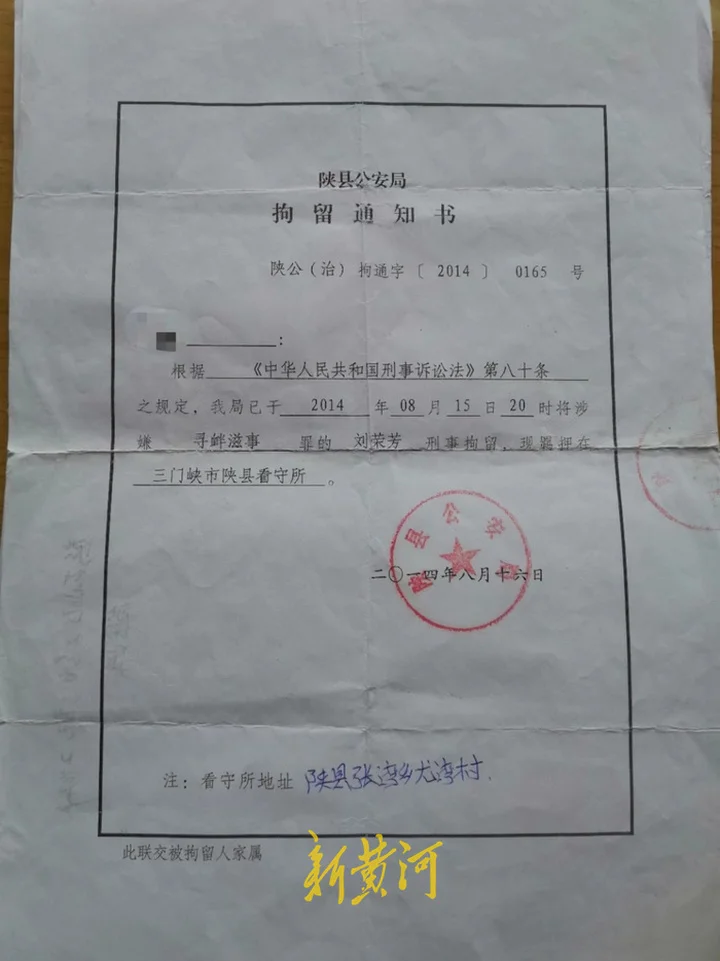 陕县公安局
拘留通知书
陕公（治）拘通字〔 2014 〕 0165 号
：
根据 《中华人民共和国刑事诉讼法》第八十条
之规定，我局已于 2014 年 08 月 15 日 20 时将涉
嫌 寻衅滋事 罪的 刘荣芳 刑事拘留，现羁押在
三门峡市陕县看守所 。
陕县公安局
二〇一四年八月十六日
注：看守所地址 陕县张湾乡尤湾村.
此联交被拘留人家属
新黄河